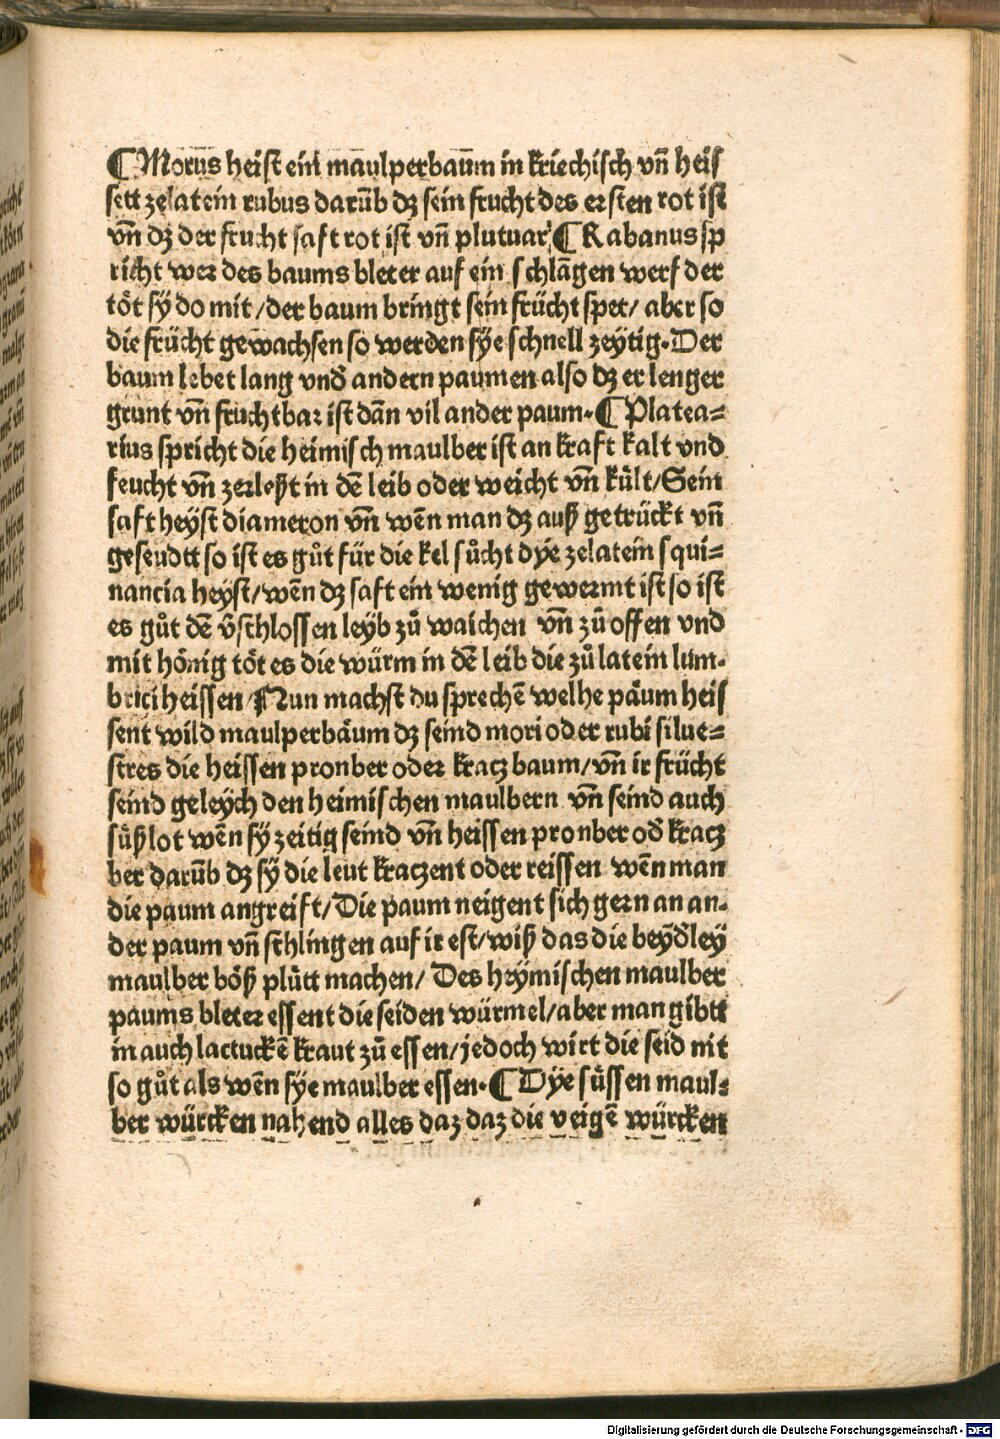 ¶ Morus heist ein maulperbaum in kriechisch vn̄ heiſ
ſett ze latein rubus darūb dz ſein frucht des erſten rot iſt
vn̄ dz der frucht ſaft rot iſt vn̄ plutuar ¶ Rabanus ſp
richt wer des baums bleter auf ein ſchlāgen werf der
töt ſÿ do mit / der baum bringt ſein frücht ſpet / aber ſo
die frücht gewachſen ſo werden ſÿe ſchnell zeytig. Der
baum lebet lang vnd̄ andern paumen alſo dz er lenger
grunt vn̄ fruchtbar iſt dān vil ander paum. ¶ Platea=
rius ſpricht die heimiſch maulber iſt an kraft kalt vnd
feucht vn̄ zerleßt in dē leib oder weicht vn̄ kült / Sein
ſaft heyſt diameron vn̄ wēn man dz auß getrückt vn̄
geſeudtt ſo iſt es gůt für die kel ſůcht dÿe ze latein ſqui=
nancia heyſt / wēn dz ſaft ein wenig gewermt iſt ſo iſt
es gůt dē v̄ſchloſſen leÿb zů waichen vn̄ zů offen vnd
mit hönig töt es die würm in dē leib die zů latein lum-
brici heiſſen / ¶ Nun machſt du ſprechē welhe päum heiſ
ſent wild maulperbäum dz ſeind mori oder rubi ſilue=
ſtres die heiſſen pronber oder kraczbaum / vn̄ ir frücht
ſeind geleÿch den heimiſchen maulbern vn̄ ſeind auch
ſüßlot wēn ſÿ zeitig ſeind vn̄ heiſſen pronber od̄ kracz
ber darūb dz ſÿ die leut kraczent oder reiſſen wēn man
die paum angreift / Die paum neigent ſich gern an an-
der paum vn̄ ſchlingen auf ir eſt / wiß das die beÿd̄ley
maulber böß plůtt machen / Des heÿmiſchen maulber
paums bleter eſſent die ſeiden würmel / aber man gibtt
in auch lactuckē kraut zů eſſen / jedoch wirt die ſeid nit
ſo gůt als wēn ſÿe maulber eſſen. ¶ Dÿe ſüſſen maul=
ber würcken nahend alles daz daz die veigē würcken
Digitalisierung gefördert durch die Deutsche Forschungsgemeinschaft - DFG